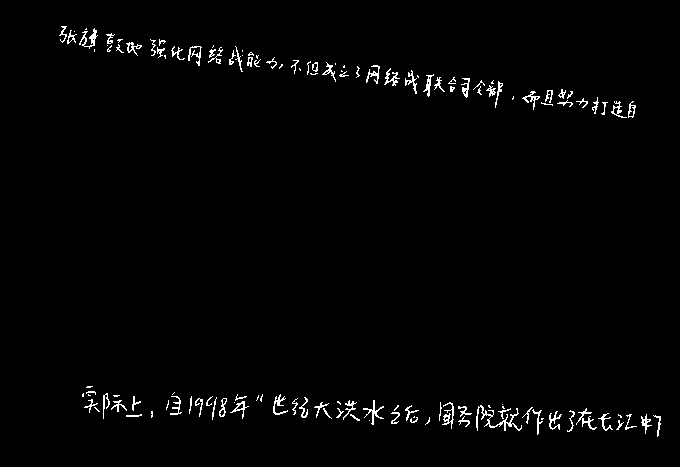 张旗鼓地强化网络战能力,不但成立了网络战联合司令部，而且努力打造自
实际上，自1998年“世纪大洪水之后，国务院就作出了在长江中